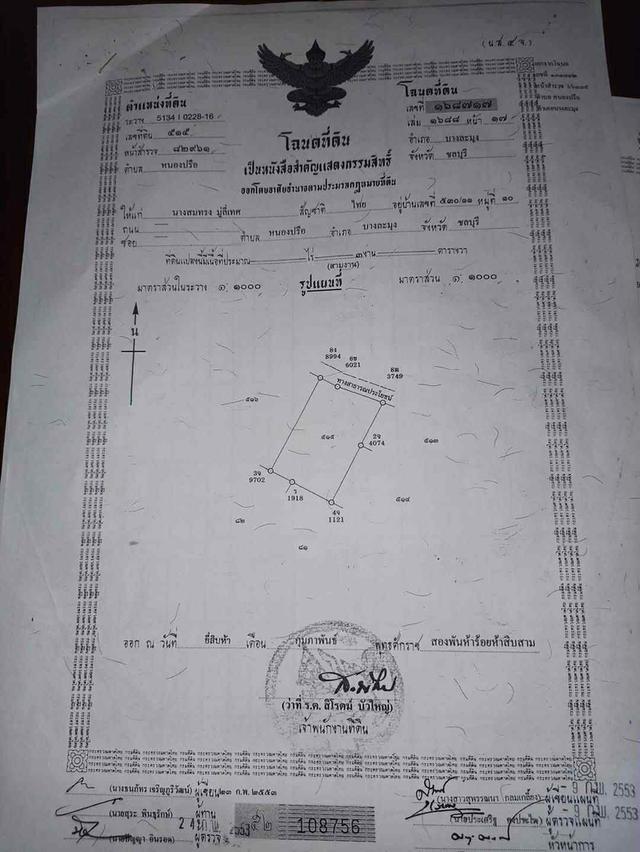 (น.ส.๔ จ.)
ตำแหน่งที่ดิน
ระวาง 5134 I 0228-16
เลขที่ดิน ๕๑๕
หน้าสำรวจ ๘๒๙๖๑
ตำบล หนองปรือ
โฉนดที่ดิน
เลขที่ ๑๖๘๗๑๗
เล่ม ๑๖๘๘ หน้า ๑๗
อำเภอ บางละมุง
จังหวัด ชลบุรี
โฉนดที่ดิน
เป็นหนังสือสำคัญแสดงกรรมสิทธิ์
ออกโดยอาศัยอำนาจตามประมวลกฎหมายที่ดิน
ให้แก่ นางสมทรง มู่ลี่เทศ สัญชาติ ไทย อยู่บ้านเลขที่ ๕๓๐/๑๑ หมู่ที่ ๑๐
ถนน
ซอย ตำบล หนองปรือ อำเภอ บางละมุง จังหวัด ชลบุรี
ที่ดินแปลงนี้มีเนื้อที่ประมาณ ไร่ ๓ งาน ตารางวา
(สามงาน)
มาตราส่วนในระวาง ๑: ๑๐๐๐ รูปแผนที่ มาตราส่วน ๑: ๑๐๐๐
น
8ง
8994
6ข
6021
8ฒ
3749
ทางสาธารณประโยชน์
๕๑๖
๕๑๕
2จ
4074
๕๑๓
3จ
9702
ร
1918
4จ
1121
๕๑๔
๘๒
๘๑
ออก ณ วันที่ ยี่สิบห้า เดือน กุมภาพันธ์ พุทธศักราช สองพันห้าร้อยห้าสิบสาม
(ว่าที่ ร.ต. สิโรตม์ บัวใหญ่)
เจ้าพนักงานที่ดิน
ผู้เขียน ๒๓ ก.พ. ๒๕๕๓
ผู้ทาน
ผู้ตรวจ
108756
ผู้เขียนแผนที่ - 9 ก.พ. 2553
ผู้ตรวจแผนที่ - 9 ก.พ. 2553
หัวหน้าการ